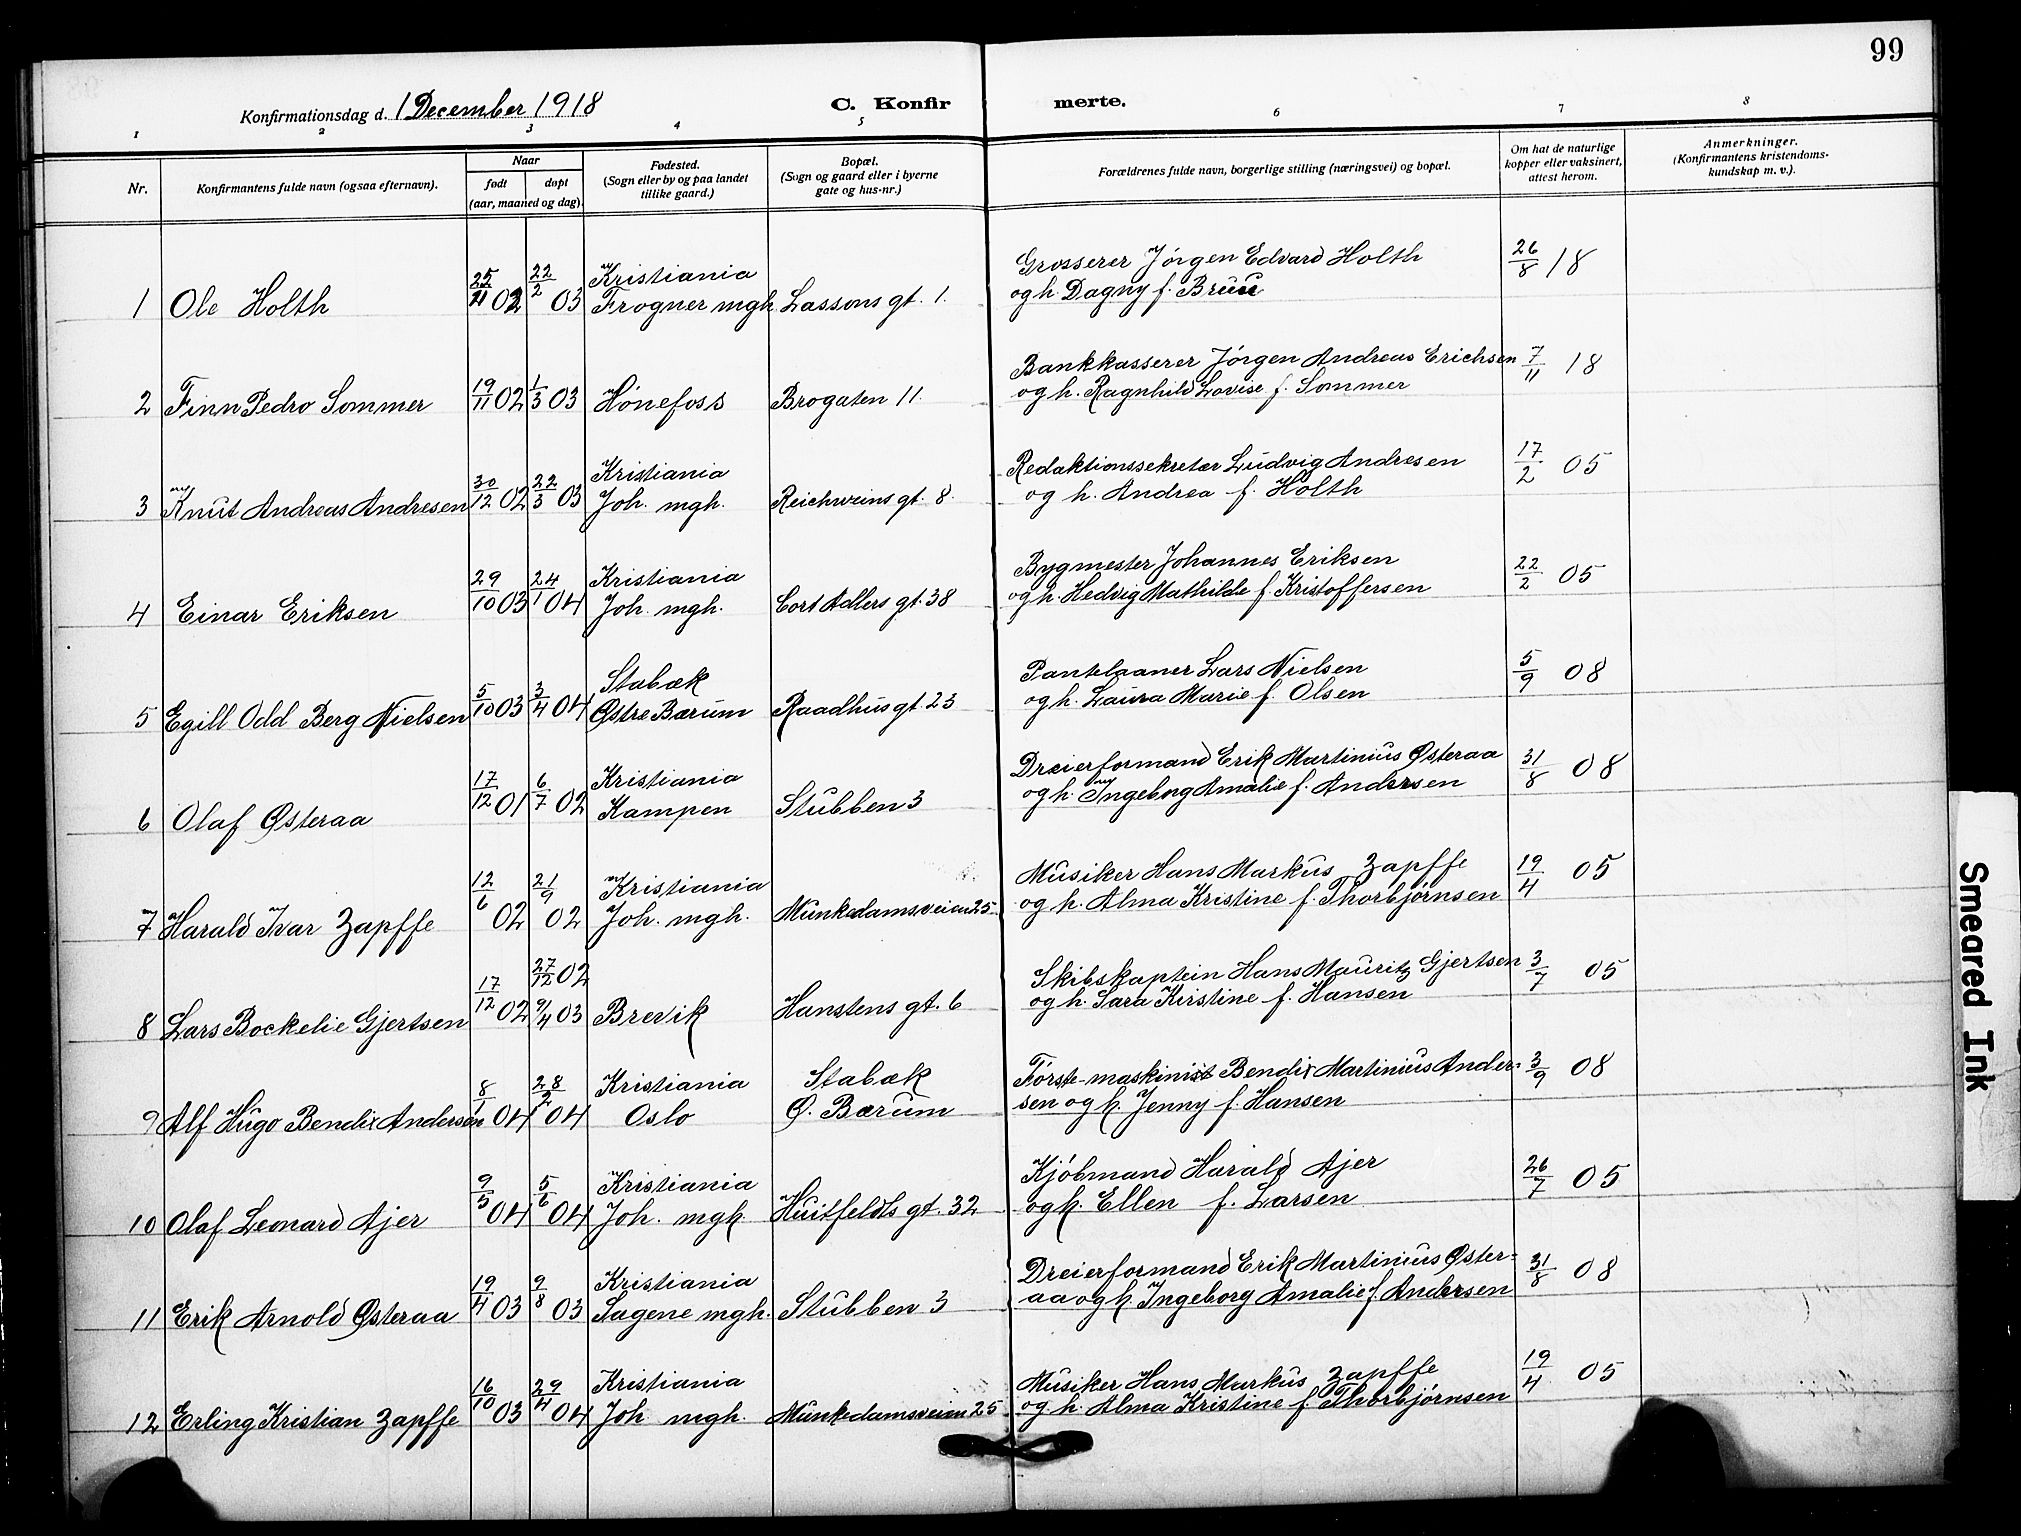 99
Konfirmationsdag d. 1 December 1918
C. Konfirmerte.
1 2 3 4 5 6 7 8
Nr.
Konfirmantens fulde navn (ogsaa efternavn).
Naar
født døpt
(aar, maaned og dag).
Fødested.
(Sogn eller by og paa landet
tillike gaard.)
Bopæl.
(Sogn og gaard eller i byerne
gate og hus-nr.)
Forældrenes fulde navn, borgerlige stilling (næringsvei) og bopæl.
Om hat de naturlige
kopper eller vaksinert,
attest herom.
Anmerkninger.
(Konfirmantens kristendoms-
kundskap m. v.).
1 Ole Holth 25/11 02 22/2 03 Kristiania
Frogner mgh. Lassons gt. 1.
Grosserer Jörgen Edvard Holth
og h. Dagny f. Bruu 26/8 18
2 Finn Pedro Sommer 19/11 02 1/3 03 Hönefoss Brogaten 11
Bankkasserer Jörgen Andreas Erichsen
og h. Ragnhild Lovise f. Sommer 7/11 18
3 Knut Andreas Andresen 30/12 02 22/3 03 Kristiania
Joh. mgh. Reichweins gt. 8.
Redaktionssekretær Ludvig Andresen
og h. Andrea f. Holth 17/2 05
4 Einar Eriksen 29/10 03 24/1 04 Kristiania
Joh. mgh. Cort Adlers gt. 38
Bygmester Johannes Eriksen
og h. Hedvig Mathilde f. Kristoffersen 22/2 05
5 Egill Odd Berg Nielsen 5/10 03 3/4 04 Stabæk
Østre Bærum Raadhusgt 23
Pantelaaner Lars Nielsen
og h. Laura Marie f. Olsen 5/9 08
6 Olaf Østeraa 17/12 01 6/7 02 Kristiania
Kampen Stubben 3
Dreierformand Erik Martinius Østeraa
og h. Ingeborg Amalie f. Andersen 31/8 08
7 Harald Ivar Zapffe 12/6 02 21/9 02 Kristiania
Joh. mgh. Munkedamsveien 25
Musiker Hans Markus Zapffe
og h. Alma Kristine f. Thorbjörnsen 19/4 05
8 Lars Bockelie Gjertsen 17/12 02 27/12 02
9/4 03 Brevik Hanstens gt. 6
Skibskaptein Hans Mauritz Gjertsen
og h. Sara Kristine f. Hansen 3/7 05
9 Alf Hugo Bendix Andersen 8/1 04 28/2 04 Kristiania
Oslo Stabæk
Ø. Bærum
Förste-maskinist Bendix Martinius Ander-
sen og h. Jenny f. Hansen 3/9 08
10 Olaf Leonard Ajer 9/5 04 5/6 04 Kristiania
Joh. mgh. Huitfeldts gt. 32
Kjöbmand Harald Ajer
og h. Ellen f. Larsen 26/7 05
11 Erik Arnold Østeraa 19/4 03 9/8 03 Kristiania
Sagene mgh. Stubben 3
Dreierformand Erik Martinius Øster-
aa og h. Ingeborg Amalie f. Andersen 31/8 08
12 Erling Kristian Zapffe 16/10 03 29/4 04 Kristiania
Joh. mgh. Munkedamsveien 25
Musiker Hans Markus Zapffe
og h. Alma Kristine f. Thorbjörnsen 19/4 05
Smeared Ink